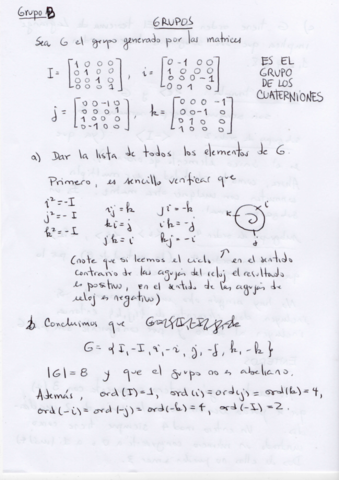 Grupo B
GRUPOS
Sea G el grupo generado por las matrices
I = [1 0 0 0; 0 1 0 0; 0 0 1 0; 0 0 0 1], i = [0 -1 0 0; 1 0 0 0; 0 0 0 -1; 0 0 1 0]
ES EL
GRUPO
DE LOS
CUATERNIONES
j = [0 0 -1 0; 0 0 0 1; 1 0 0 0; 0 -1 0 0], k = [0 0 0 -1; 0 0 -1 0; 0 1 0 0; 1 0 0 0]
a) Dar la lista de todos los elementos de G.
Primero, es sencillo verificar que
i² = -I ij = k ji = -k
j² = -I ki = j ik = -j
k² = -I jk = i kj = -i
i
k
j
(note que si leemos el ciclo en el sentido
contrario de las agujas del reloj el resultado
es positivo, en el sentido de las agujas de
reloj es negativo)
Concluimos que
G = {I, -I, i, -i, j, -j, k, -k}
|G| = 8 y que el grupo no es abeliano.
Además, ord(I) = 1, ord(i) = ord(j) = ord(k) = 4,
ord(-i) = ord(-j) = ord(-k) = 4, ord(-I) = 2.